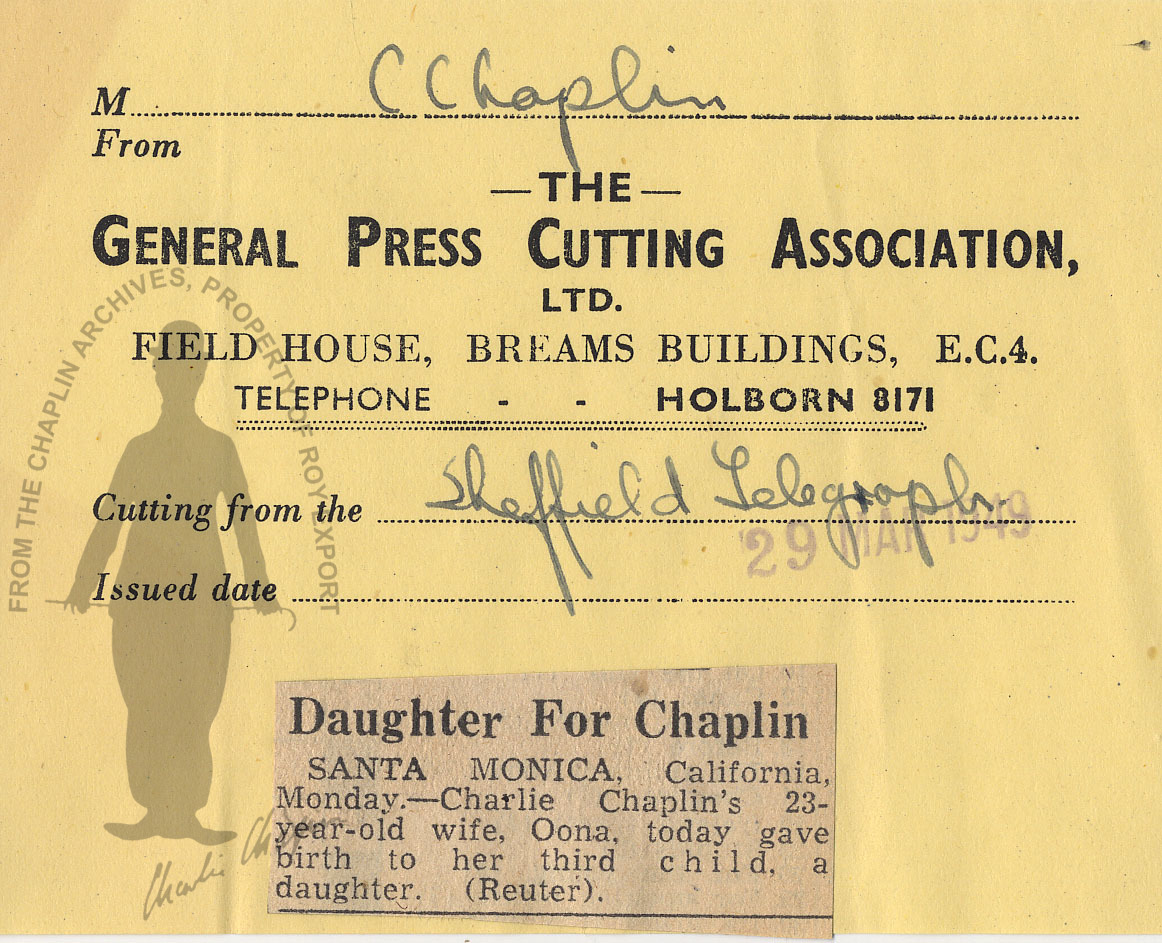 M C Chaplin
From
—THE—
GENERAL PRESS CUTTING ASSOCIATION,
LTD.
FIELD HOUSE, BREAMS BUILDINGS, E.C.4.
TELEPHONE - - HOLBORN 8171
Cutting from the Sheffield Telegraph
29 MAR 1949
Issued date
Daughter For Chaplin
SANTA MONICA, California,
Monday.—Charlie Chaplin's 23-
year-old wife, Oona, today gave
birth to her third child, a
daughter. (Reuter).
FROM THE CHAPLIN ARCHIVES, PROPERTY OF ROY EXPORT
Charlie Chaplin